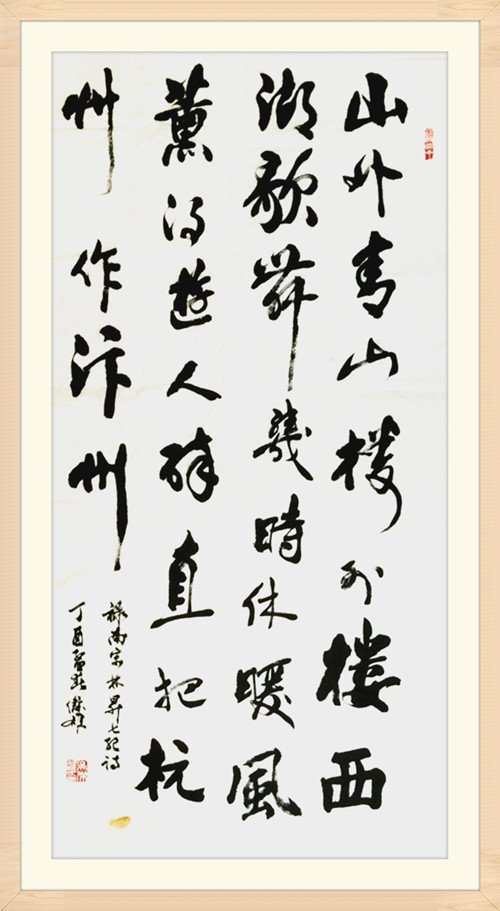 山外青山楼外楼西
湖歌舞幾時休暖風
薰得遊人醉直把杭
州作汴州
録南宋林昇七绝诗
丁酉春